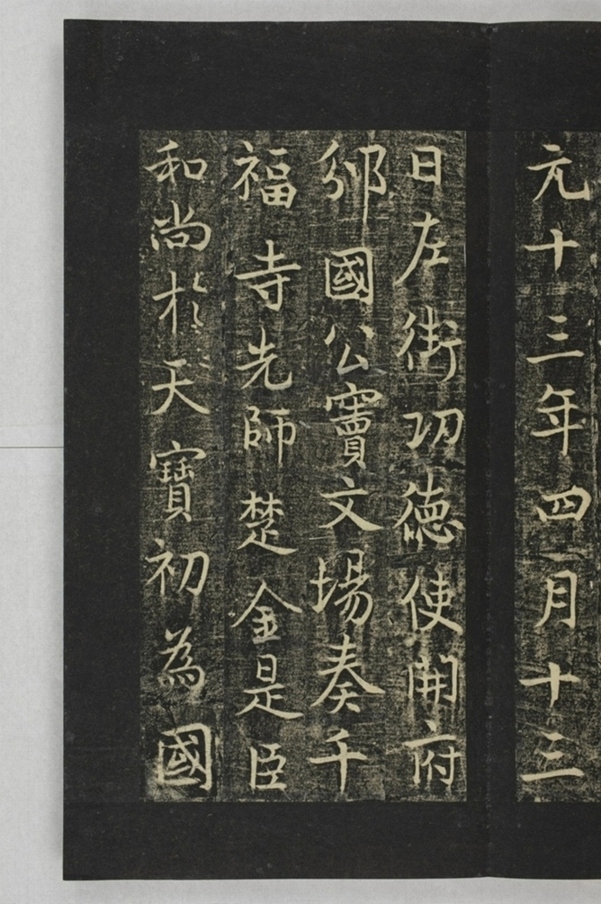 元十三年四月十三
日左街功德使開府
邠國公竇文場奏千
福寺先師楚金是臣
和尚於天寶初為國